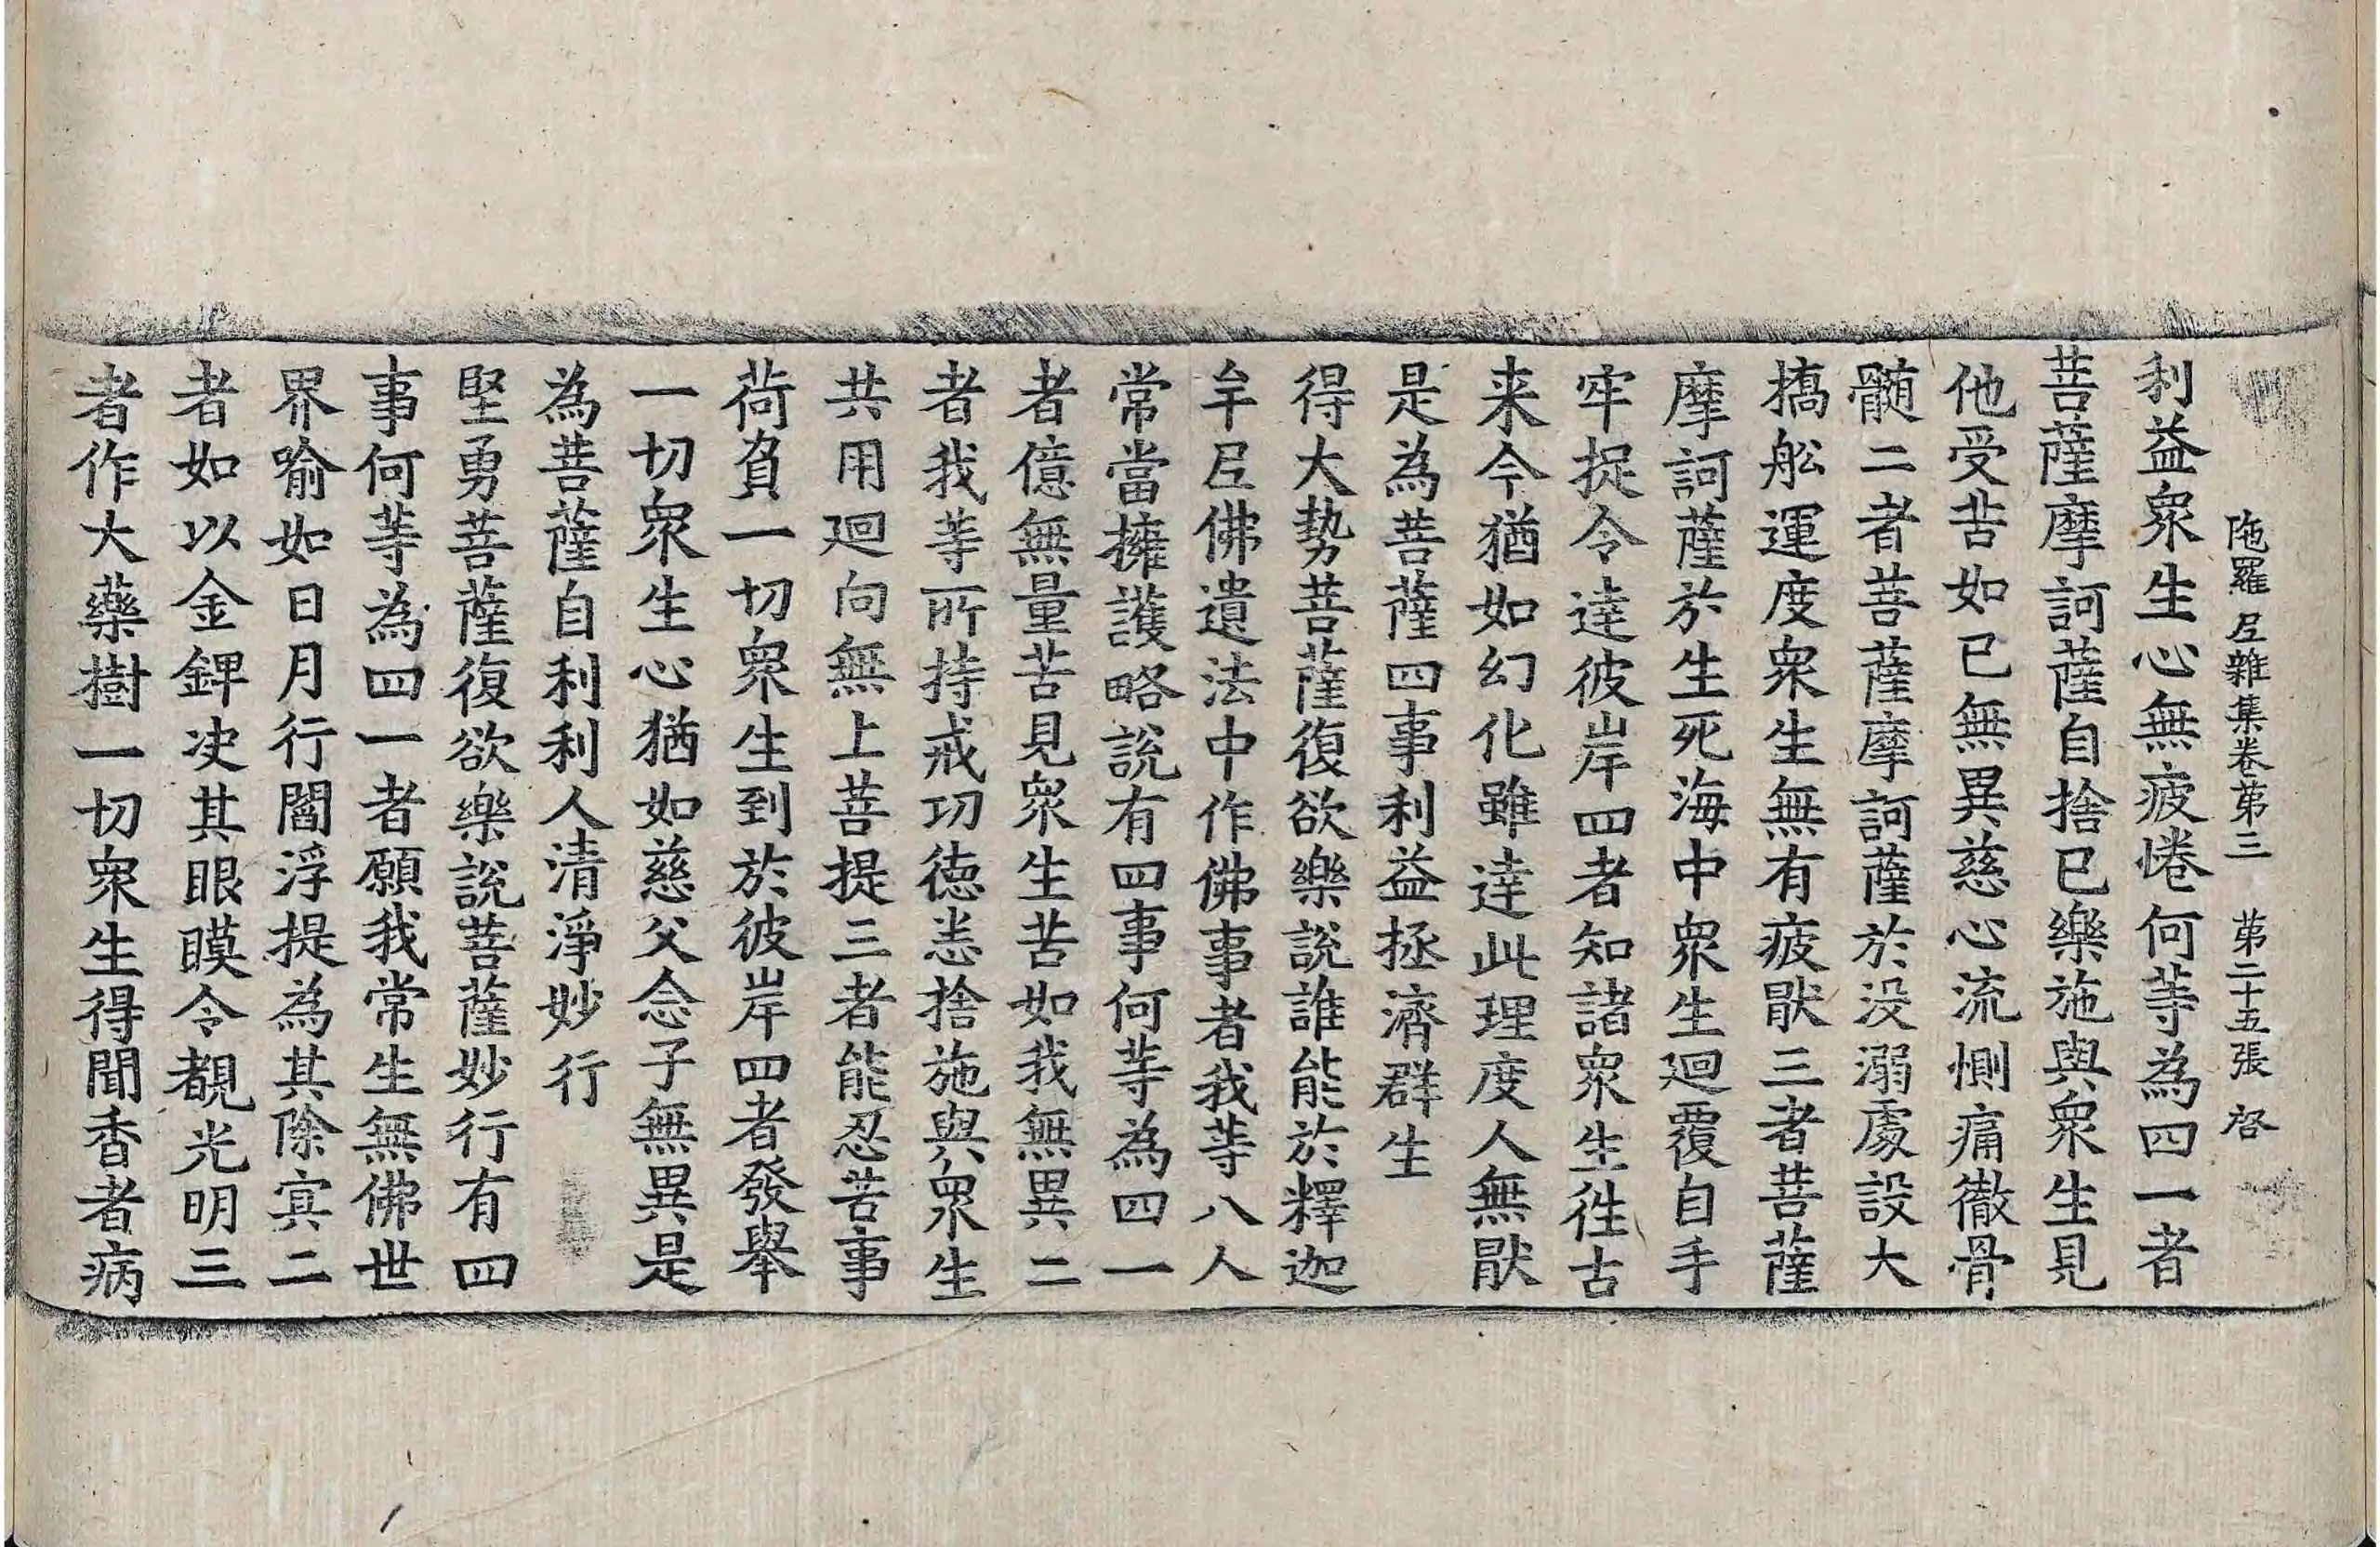 陁羅尼雜集卷第三 第二十五張 啓
利益衆生心無疲惓何等為四一者
菩薩摩訶薩自捨已樂施與衆生見
他受苦如已無異慈心流惻痛徹骨
髄二者菩薩摩訶薩於没溺處設大
橋舩運度衆生無有疲猒三者菩薩
摩訶薩於生死海中衆生迴覆自手
牢捉令達彼岸四者知諸衆生徃古
来今猶如幻化雖達此理度人無猒
是為菩薩四事利益拯濟群生
得大勢菩薩復欲樂說誰能於釋迦
牟尼佛遺法中作佛事者我等八人
常當擁護略說有四事何等為四一
者億無量苦見衆生苦如我無異二
者我等所持戒功徳恙捨施與衆生
共用迴向無上菩提三者能忍苦事
荷負一切衆生到於彼岸四者發舉
一切衆生心猶如慈父念子無異是
為菩薩自利利人清淨妙行
堅勇菩薩復欲樂說菩薩妙行有四
事何等為四一者願我常生無佛世
界喻如日月行閻浮提為其除㝠二
者如以金錍决其眼瞙令覩光明三
者作大藥樹一切衆生得聞香者病